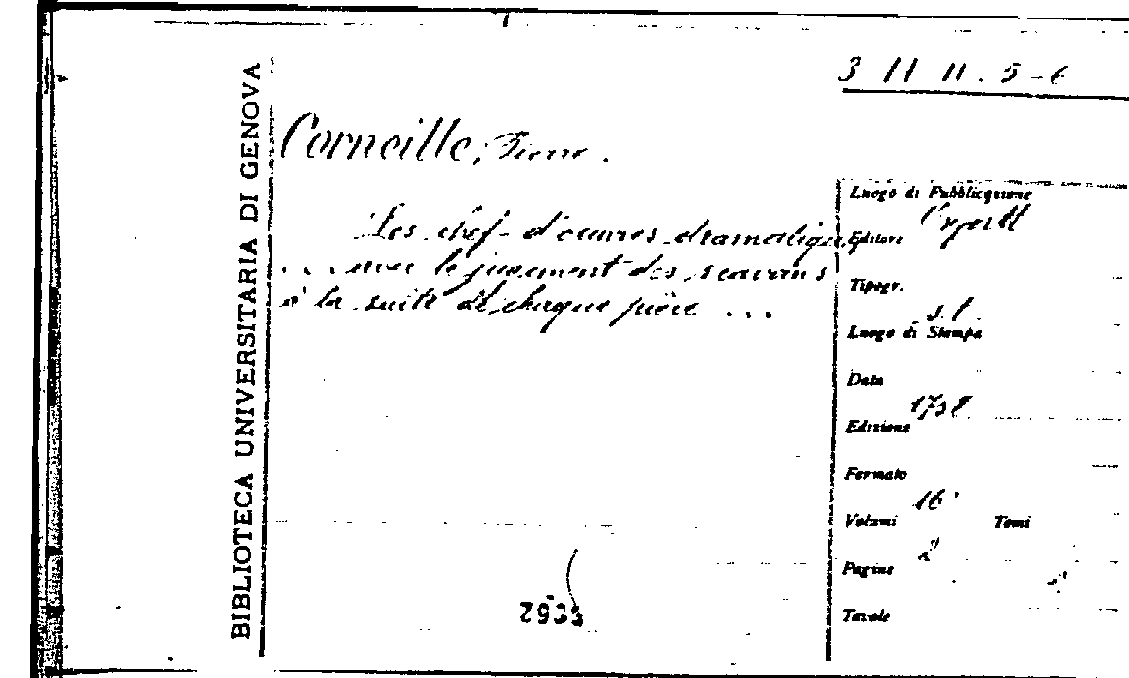 3 H II. 5-6
BIBLIOTECA UNIVERSITARIA DI GENOVA
Corneille, Pierre.
Les chef-d'oeuvres dramatiques
... avec le jugement des scavans
à la suite de chaque pièce ...
Luogo di Pubblicazione
Editore
Tipogr.
s.l.
Luogo di Stampa
Data
Edizione
Formato
16°
Volumi Tomi
2
Pagine
Tavole